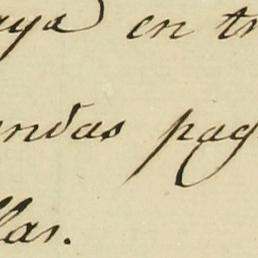 aya en tr
endas pag
llas.